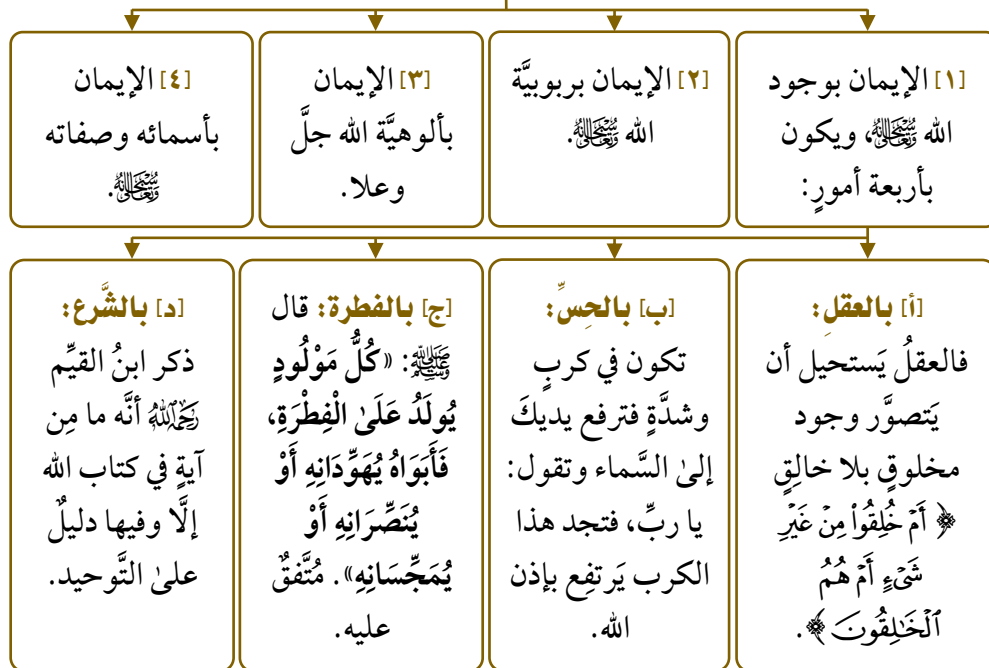 [١] الإيمان بوجود
الله ﷾، ويكون
بأربعة أمورٍ:
[٢] الإيمان بربوبيَّة
الله ﷾.
[٣] الإيمان
بألوهيَّة الله جلَّ
وعلا.
[٤] الإيمان
بأسمائه وصفاته
﷾.
[أ] بالعقلِ:
فالعقلُ يَستحيل أن
يَتصوَّر وجود
مخلوقٍ بلا خالِقٍ
﴿ أَمۡ خُلِقُواْ مِنۡ غَيۡرِ
شَيۡءٍ أَمۡ هُمُ
ٱلۡخَٰلِقُونَ ﴾.
[ب] بالحِسِّ:
تكون في كربٍ
وشدَّةٍ فترفع يديكَ
إلىٰ السَّماء وتقول:
يا ربِّ، فتجد هذا
الكرب يَرتفِع بإذن
الله.
[ج] بالفطرة: قال
ﷺ: «كُلُّ مَوْلُودٍ
يُولَدُ عَلَىٰ الْفِطْرَةِ،
فَأَبَوَاهُ يُهَوِّدَانِهِ أَوْ
يُنَصِّرَانِهِ أَوْ
يُمَجِّسَانِهِ». مُتَّفقٌ
عليه.
[د] بالشَّرع:
ذكر ابنُ القيِّم
رَحِمَهُ اللَّهُ أنَّه ما مِن
آيةٍ في كتاب الله
إلَّا وفيها دليلٌ
علىٰ التَّوحيد.